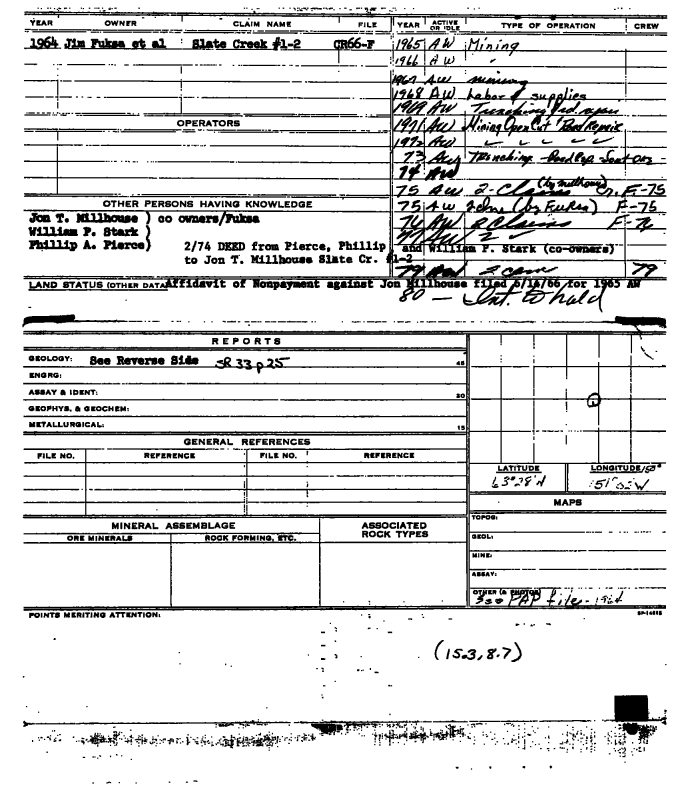 YEAR OWNER CLAIM NAME FILE YEAR ACTIVE OR IDLE TYPE OF OPERATION CREW
1964 Jim Fuksa et al Slate Creek #1-2 CR66-F 1965 AW Mining
1966 AW "
1967 AW mining
1968 AW Labor & supplies
1969 AW Trenching
OPERATORS 1971 AW Mining Open Cut Road Repair
1972 AW
73 AW Trenching
74 AW
75 AW 2-Claims (by Millhouse) F-75
OTHER PERSONS HAVING KNOWLEDGE 75 AW (by Fuksa) F-75
Jon T. Millhouse ) co owners/Fuksa 76 AW 2 Claims F-76
William F. Stark ) 77 AW 2
Phillip A. Pierce) 2/74 DEED from Pierce, Phillip and William F. Stark (co-owners)
to Jon T. Millhouse Slate Cr. #1-2
79 AW 2 79
LAND STATUS (OTHER DATA) Affidavit of Nonpayment against Jon Millhouse filed 6/16/66 for 1965 AW
80 - Int. to hold
REPORTS
GEOLOGY: See Reverse Side SR 33 p 25 45
ENGRG:
ASSAY & IDENT: 30
GEOPHYS. & GEOCHEM:
METALLURGICAL: 15
GENERAL REFERENCES
FILE NO. REFERENCE FILE NO. REFERENCE
LATITUDE LONGITUDE
63°28'N 51'02"W
MAPS
MINERAL ASSEMBLAGE ASSOCIATED ROCK TYPES TOPOG:
ORE MINERALS ROCK FORMING, ETC. GEOL:
MINE:
ASSAY:
OTHER (& PHOTOS)
See PAP file - 1964
POINTS MERITING ATTENTION:
(15.3, 8.7)